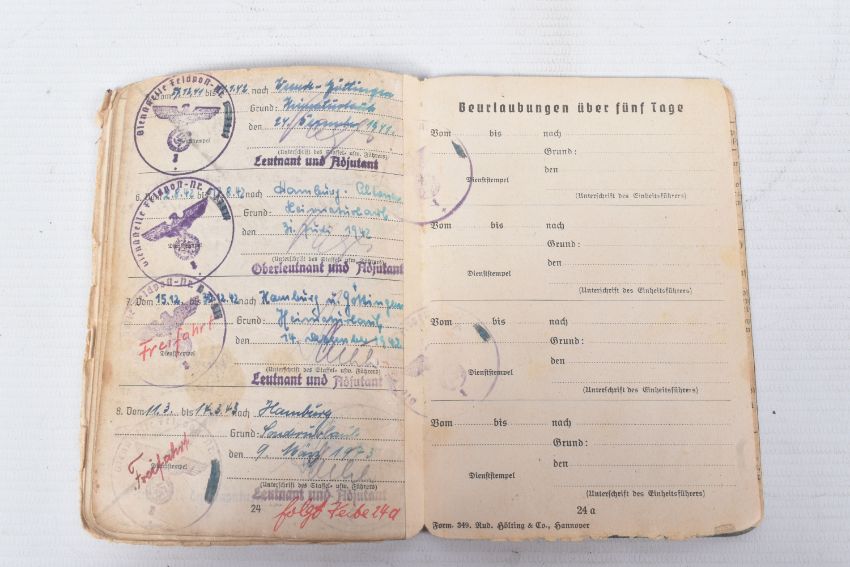 Dienststelle Feldpost-Nr.
Vom bis 42 nach Göttingen
Grund: Heimaturlaub
den 24. Dezember 1941
Dienststempel
(Unterschrift des Staffel- usw. Führers)
Leutnant und Adjutant
Dienststelle Feldpost-Nr.
6. 8.42 8.42 nach Hamburg-
Grund: Heimaturlaub
31. Juli 1942
Dienststempel
(Unterschrift des Staffel- usw. Führers)
Oberleutnant und Adjutant
7. Vom 15.12. bis 12.42 nach Hamburg u. Göttingen
Grund: Heimaturlaub
den 14. Dezember 1942
Freifahrt
Dienststempel
(Unterschrift des Staffel- usw. Führers)
Leutnant und Adjutant
8. Vom 11.3. bis 14.3.43 nach Hamburg
Grund: Sonderurlaub
den 9. März 1943
Freifahrt
Dienststempel
(Unterschrift des Staffel- usw. Führers)
Leutnant und Adjutant
24
folgt Seite 24a
Beurlaubungen über fünf Tage
Vom bis nach
Grund:
den
Dienststempel
(Unterschrift des Einheitsführers)
Vom bis nach
Grund:
den
Dienststempel
(Unterschrift des Einheitsführers)
Vom bis nach
Grund:
den
Dienststempel
(Unterschrift des Einheitsführers)
Vom bis nach
Grund:
den
Dienststempel
(Unterschrift des Einheitsführers)
24 a
Form. 349. Rud. Hölring & Co., Hannover